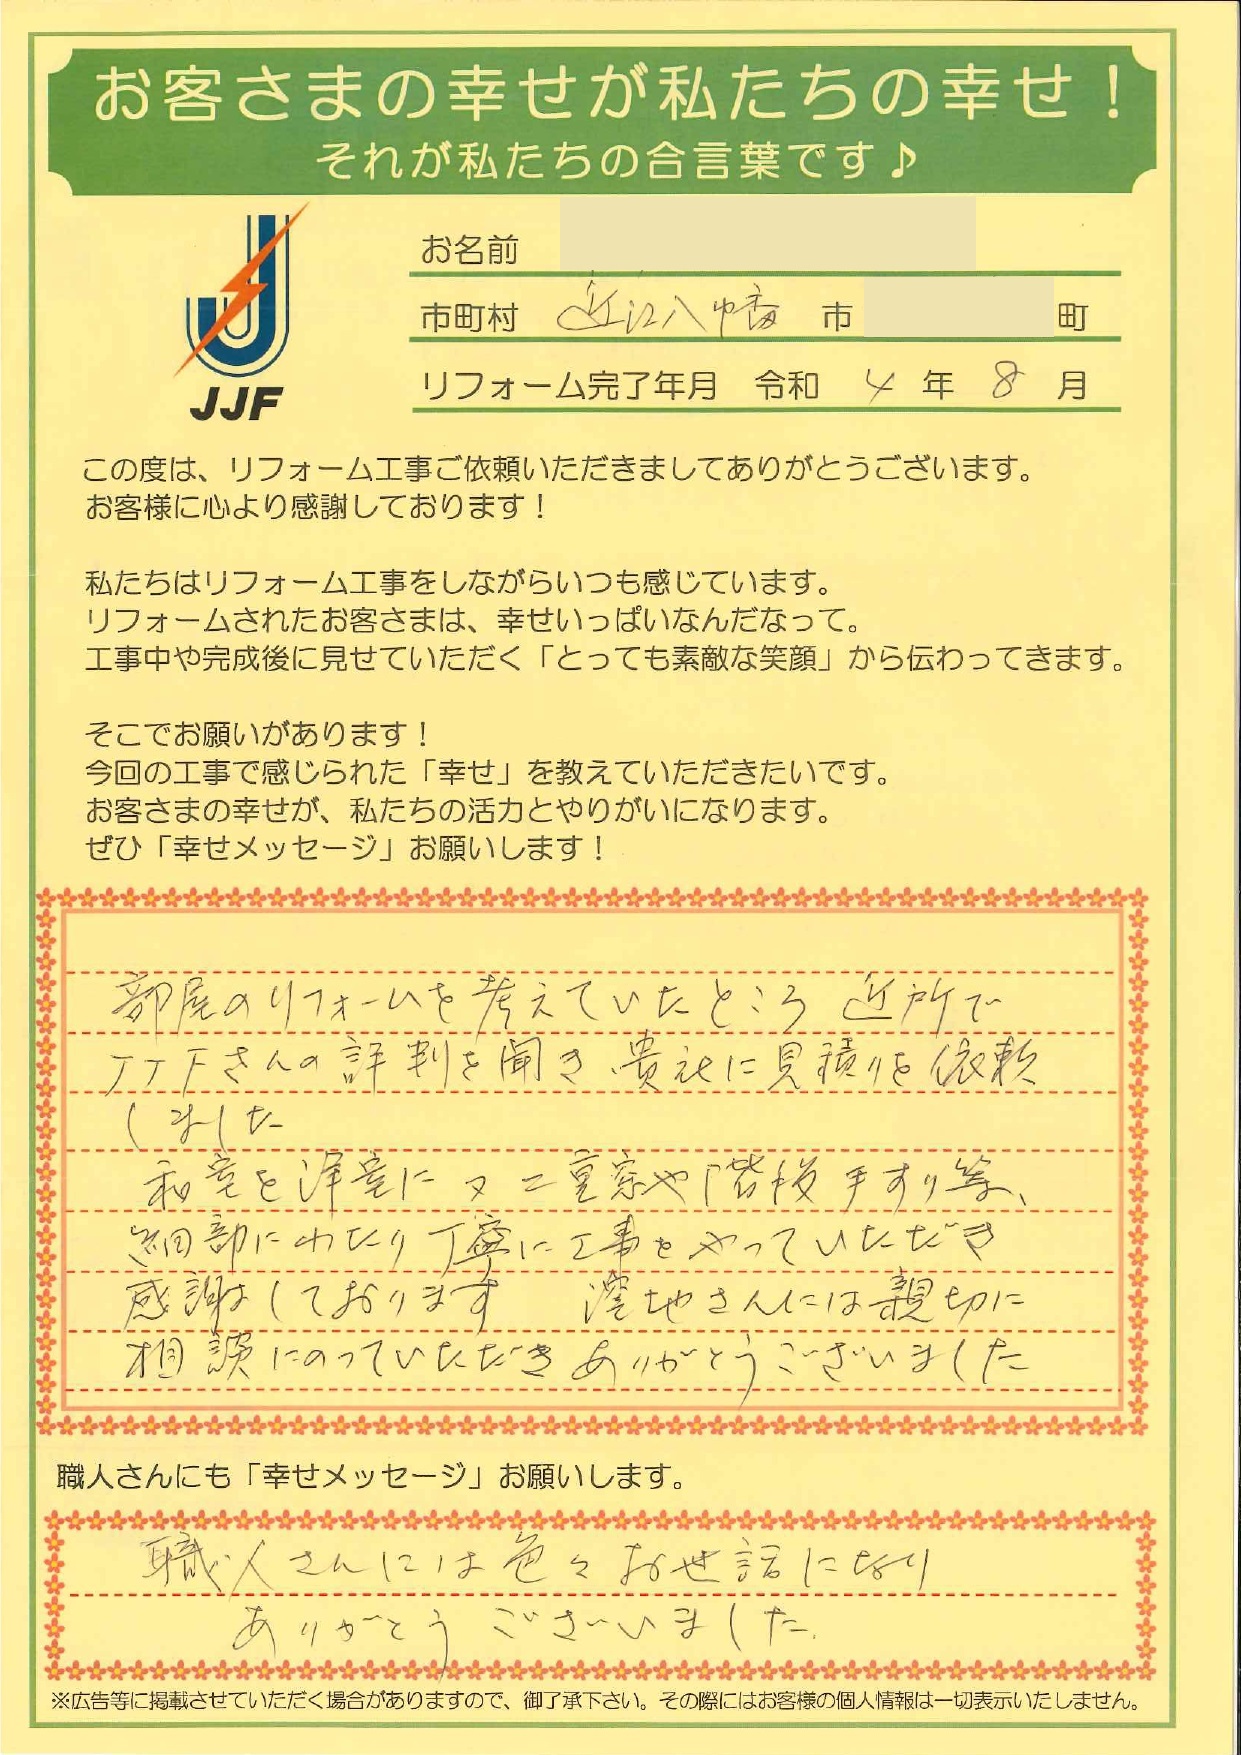 お客さまの幸せが私たちの幸せ！
それが私たちの合言葉です♪
JJF
お名前
市町村 近江八幡 市 町
リフォーム完了年月 令和 4 年 8 月
この度は、リフォーム工事ご依頼いただきましてありがとうございます。
お客様に心より感謝しております！
私たちはリフォーム工事をしながらいつも感じています。
リフォームされたお客さまは、幸せいっぱいなんだなって。
工事中や完成後に見せていただく「とっても素敵な笑顔」から伝わってきます。
そこでお願いがあります！
今回の工事で感じられた「幸せ」を教えていただきたいです。
お客さまの幸せが、私たちの活力とやりがいになります。
ぜひ「幸せメッセージ」お願いします！
部屋のリフォームを考えていたところ 近所で
JJFさんの評判を聞き、貴社に見積りを依頼
しました
和室を洋室に 又 二重窓や階段手すり等、
細部にわたり丁寧に工事をやっていただき
感謝しております 地さんには親切に
相談にのっていただきありがとうございました
職人さんにも「幸せメッセージ」お願いします。
職人さんには色々お世話になり
ありがとうございました.
※広告等に掲載させていただく場合がありますので、御了承下さい。その際にはお客様の個人情報は一切表示いたしません。